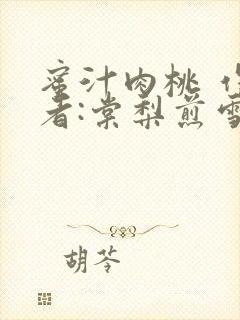 蜜汁肉桃 作
者:棠梨煎雪
胡苓